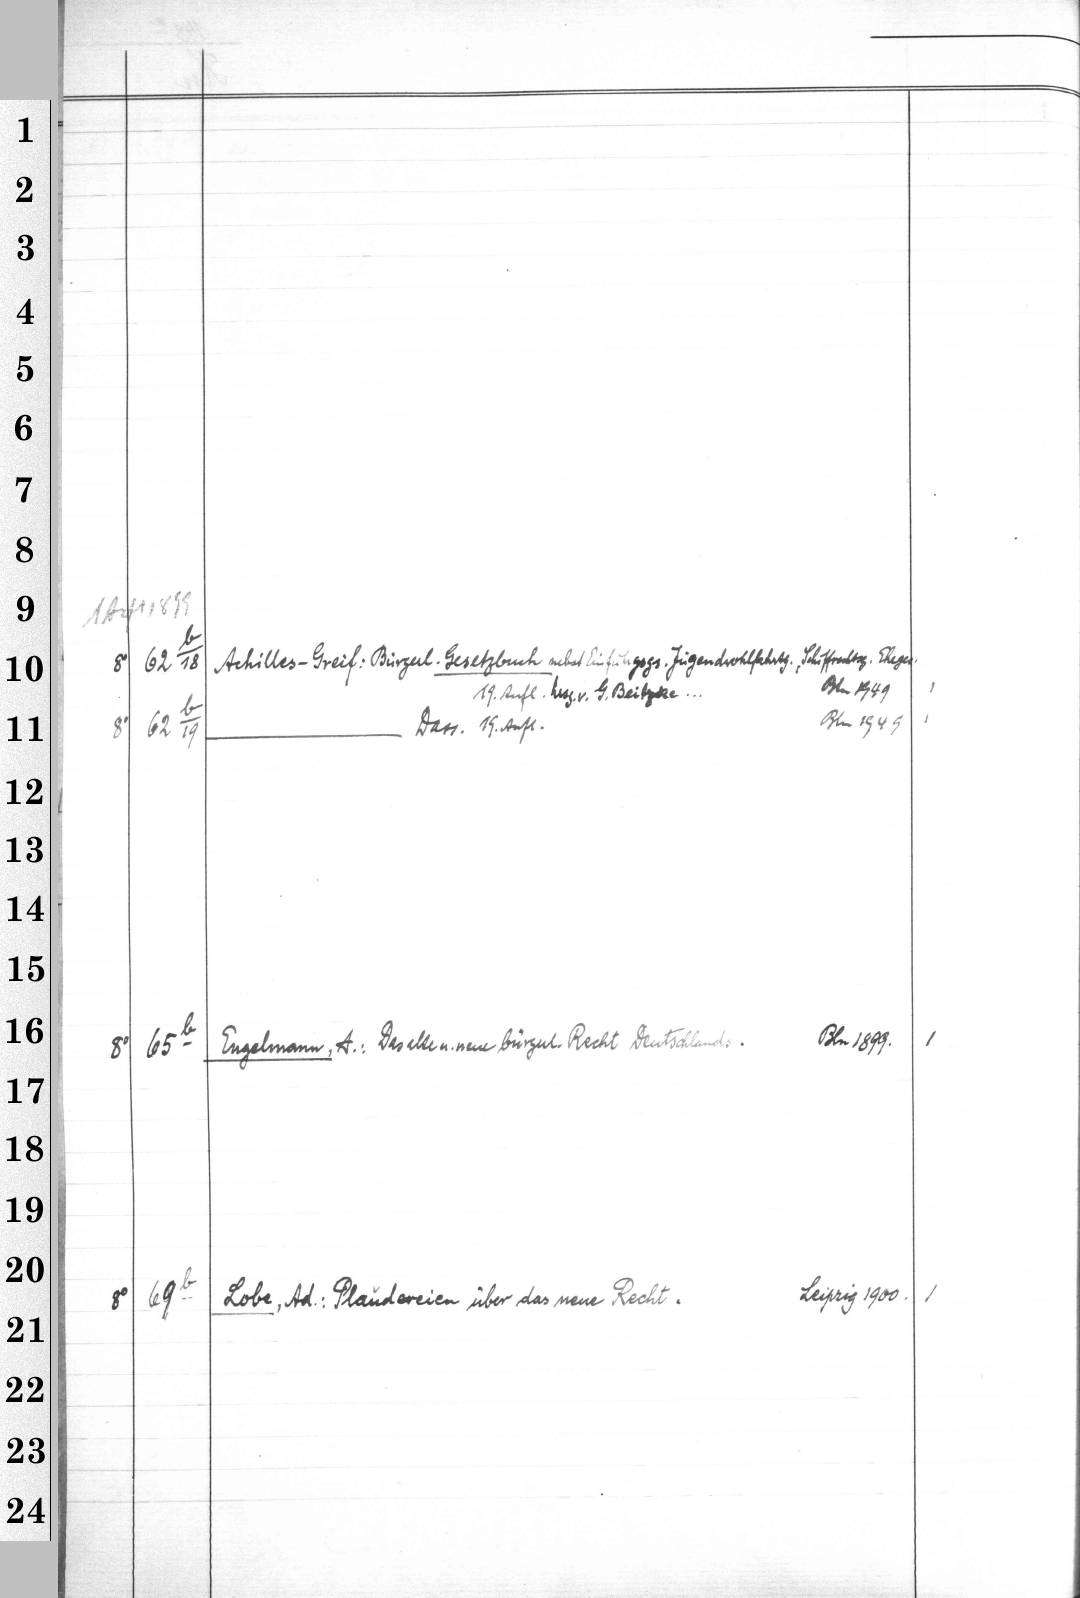 1
2
3
4
5
6
7
8
9
1 Aufl 1899
10
8° 62 b/18 Achilles-Greif: Bürgerl. Gesetzbuch nebst Einführgsgs. Jugendwohlfahrtsg., Schiffsrechtsg. Eheges.
19. Aufl. hrsg. v. G. Beitzke ... Bln 1949 1
11
8° 62 b/19 Dass. 19. Aufl. Bln 1949 1
12
13
14
15
16
8° 65 b Engelmann, A.: Das alte u. neue bürgerl. Recht Deutschlands. Bln 1899. 1
17
18
19
20
8° 69 b Lobe, Ad.: Plaudereien über das neue Recht. Leipzig 1900. 1
21
22
23
24